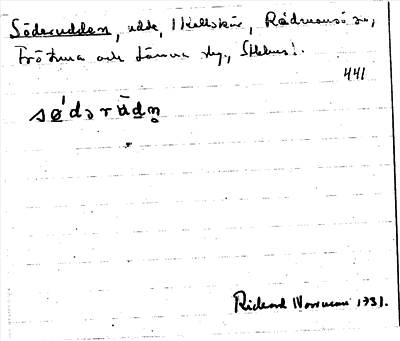 Söderudden, udde, i Kallskär, Rådmansö sn,
Frötuna och Länna skg, Sthlms l.
441
sø'dərūdn̥
Rickard Norrman 1931.